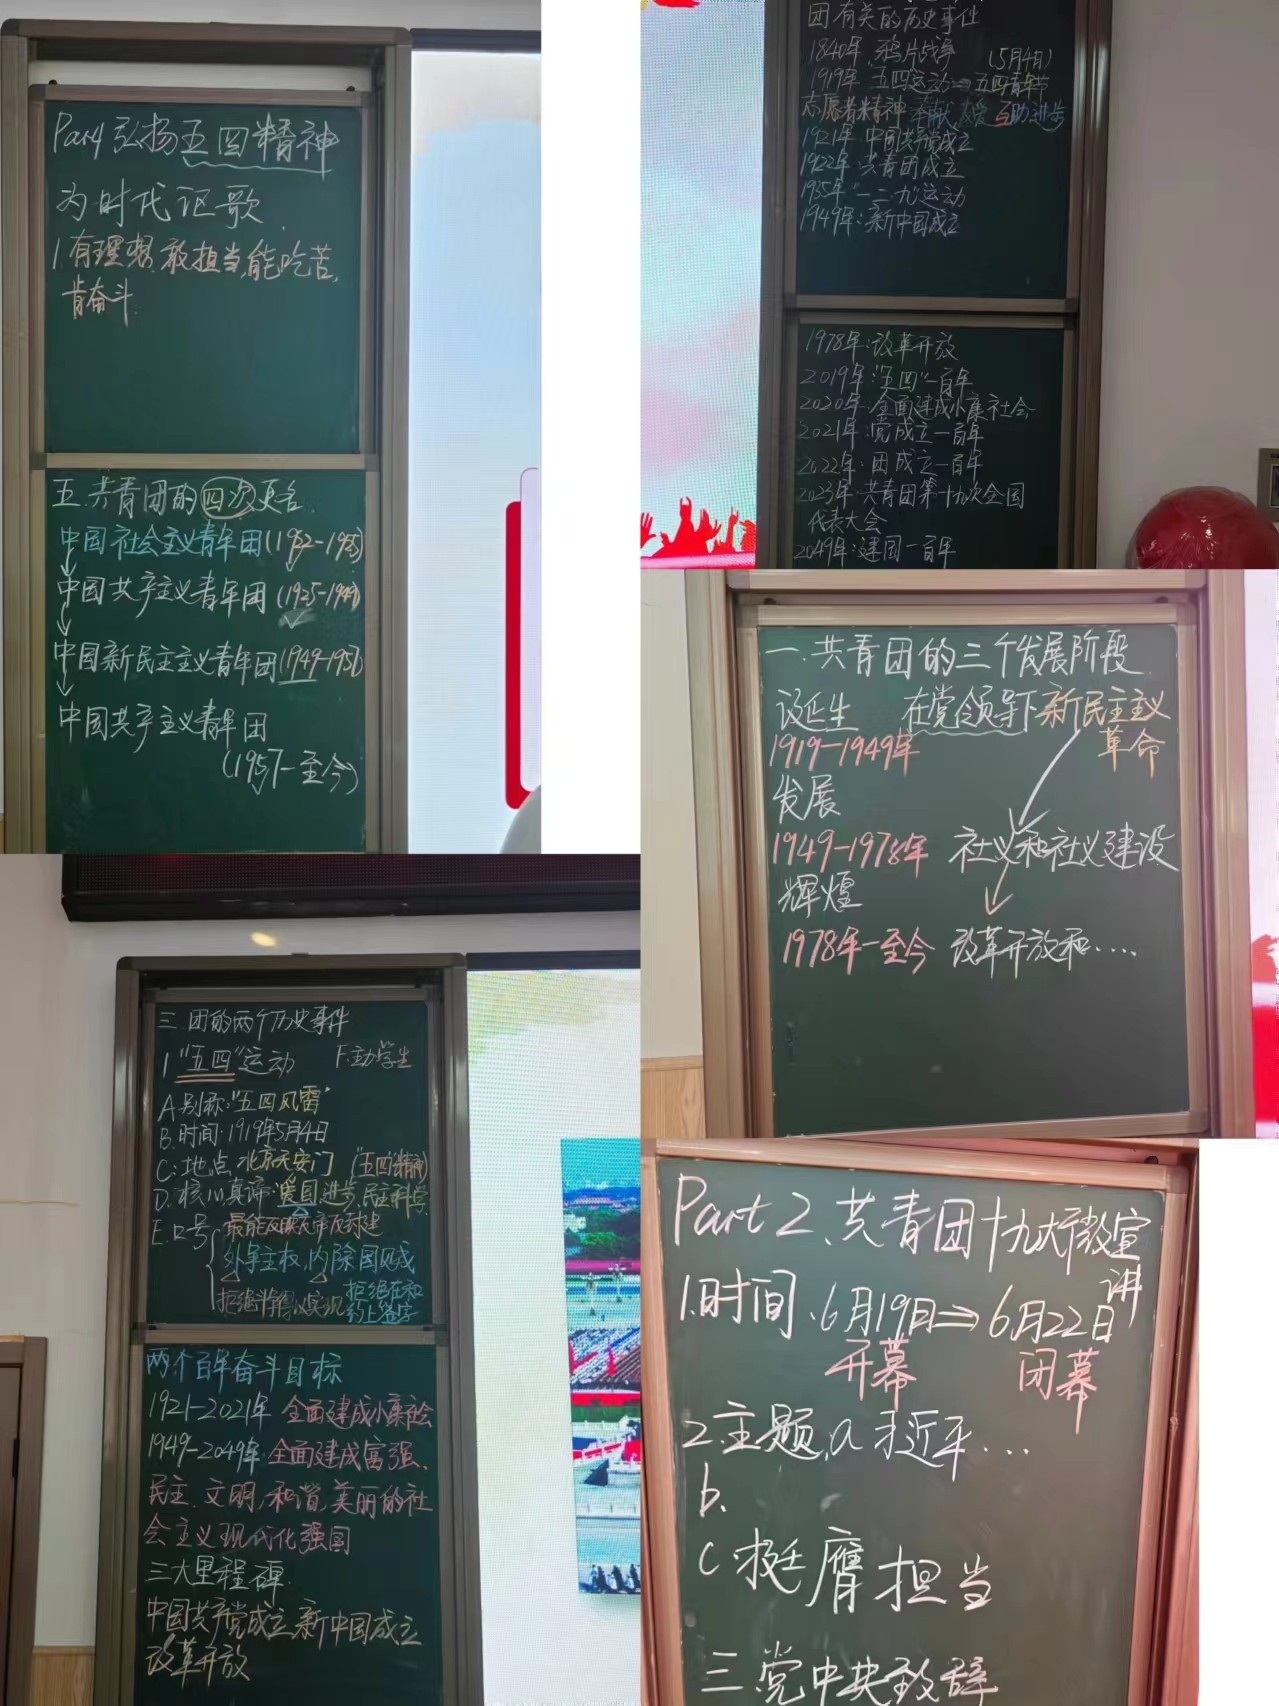 Part4弘扬五四精神
为时代讴歌.
1.有理想,敢担当,能吃苦,
肯奋斗.
五.共青团的四次更名.
中国社会主义青年团(1922-1925)
中国共产主义青年团(1925-1949)
中国新民主主义青年团(1949-1957)
中国共产主义青年团
(1957-至今)
团有关的历史事件
1840年,鸦片战争
(5月4日)
1919年 五四运动⇒五四青年节
志愿者精神:奉献,友爱 互助进步
1921年:中国共产党成立
1922年:共青团成立
1935年"一二.九"运动
1949年:新中国成立
1978年:改革开放
2019年:"五四"一百年
2020年:全面建成小康社会
2021年:党成立一百年
2022年:团成立一百年
2023年:共青团第十九次全国
代表大会
2049年:建国一百年
一.共青团的三个发展阶段
诞生 在党领导下新民主主义
1919-1949年 革命
发展
1949-1978年 社义和社义建设
辉煌
1978年-至今 改革开放和....
三.团的两个历史事件
1"五四"运动 F.主力:学生
A.别称:"五四风雷"
B.时间:1919年5月4日
C:地点 北京天安门 ("五四"精神)
D.核心真谛:爱国,进步,民主科学.
E.口号 最能反映反帝反封建
外争主权,内除国贼
拒绝在和
约上签字
两个百年奋斗目标
1921-2021年 全面建成小康社会
1949-2049年:全面建成富强、
民主.文明,和谐,美丽的社
会主义现代化强国
三大里程碑.
中国共产党成立,新中国成立
改革开放
Part 2、共青团十九大微宣
讲
1.时间、6月19日⇒6月22日
开幕 闭幕
2.主题,a 习近平...
b.
c.挺膺担当
三.党中央致辞